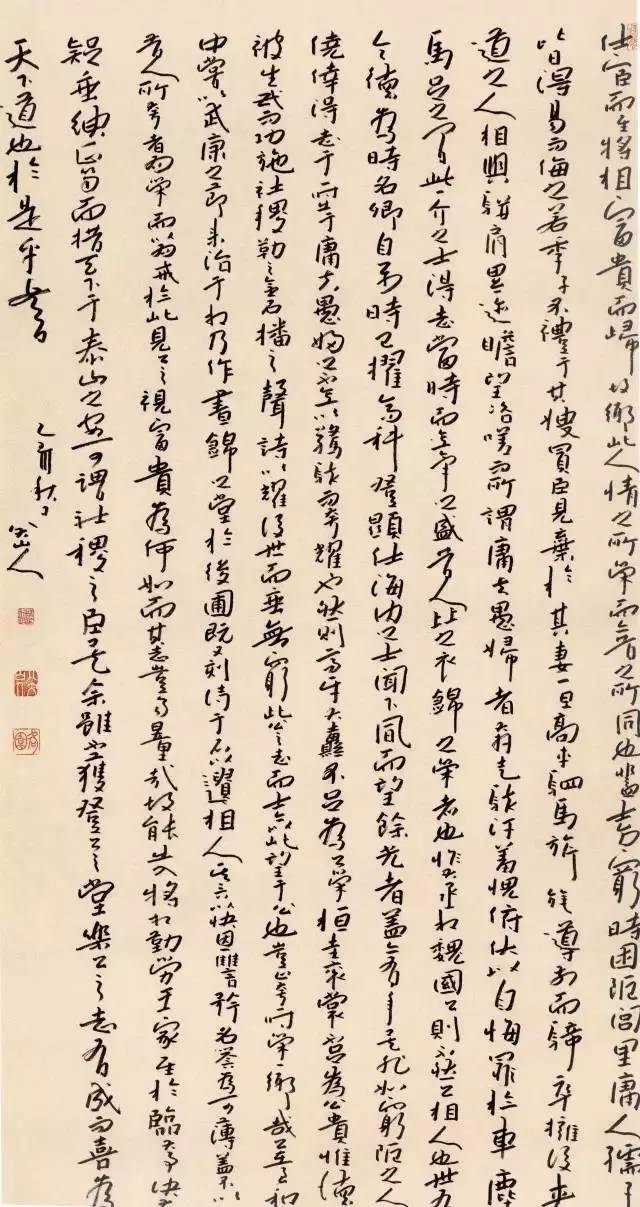 仕宦而至将相富贵而歸故鄉此人情之所榮而今昔之所同也蓋士方窮時困阨閭里庸人孺子
皆得易而侮之若季子不禮于其嫂買臣見棄於其妻一旦高車駟馬旗旄導前而騎卒擁後夾
道之人相與駢肩累迹瞻望咨嗟而所謂庸夫愚婦者奔走駭汗羞愧俯伏以自悔罪於車塵
馬足之間此一介之士得志當時而意氣之盛昔人比之衣錦之榮者也惟大丞相魏國公則然公相人也世有
令德為時名卿自公少時已擢高科登顯仕海内之士聞下風而望餘光者蓋亦有年矣所謂將相而富貴皆公所宜素有非如窮阨之人
僥倖得志于一時出于庸夫愚婦之不意以驚駭而夸耀之也然則高牙大纛不足為公榮桓圭衮裳不足為公貴惟德
被生民而功施社稷勒之金石播之聲詩以耀後世而垂無窮此公之志而士亦以此望于公也豈止夸一時榮一鄉哉公在至和
中嘗以武康之節來治于相乃作晝錦之堂於後圃既又刻詩于石以遺相人其言以快恩讐矜名譽為可薄蓋不以
昔人所夸者為榮而以為戒於此見公之視富貴為何如而其志豈易量哉故能出入將相勤勞王家至於臨大事決大
議垂紳正笏而措天下于泰山之安可謂社稷之臣矣余雖不獲登公之堂樂公之志有成而喜為
天下道也於是乎書
乙亥秋日 山人